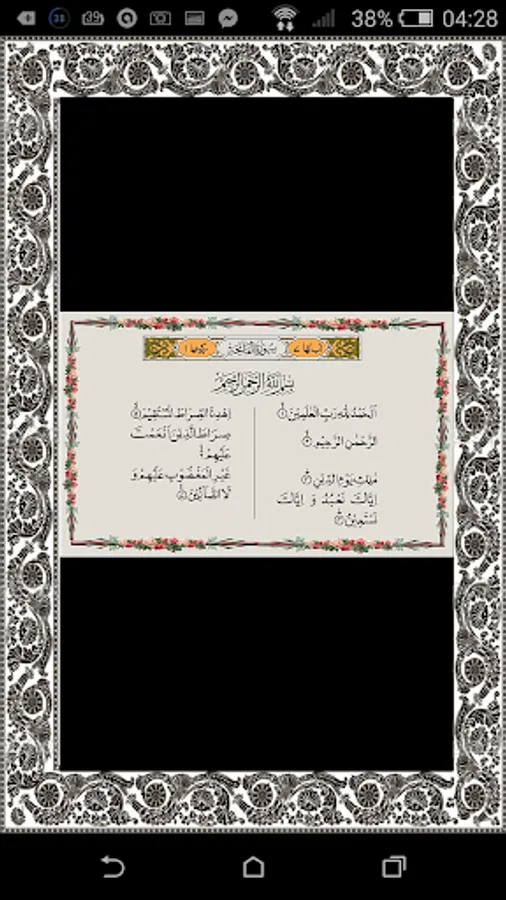 38 39 38% 04:28
سورة الفاتحة
بسم الله الرحمن الرحيم
اَلْحَمْدُ لِلّٰهِ رَبِّ الْعٰلَمِيْنَ ۱
الرَّحْمٰنِ الرَّحِيْمِ ۲
مٰلِكِ يَوْمِ الدِّيْنِ ۳
اِيَّاكَ نَعْبُدُ وَ اِيَّاكَ
نَسْتَعِيْنُ ۴
اِهْدِنَا الصِّرَاطَ الْمُسْتَقِيْمَ ۵
صِرَاطَ الَّذِيْنَ اَنْعَمْتَ
عَلَيْهِمْ ۶
غَيْرِ الْمَغْضُوْبِ عَلَيْهِمْ وَ
لَا الضَّآلِّيْنَ ۷